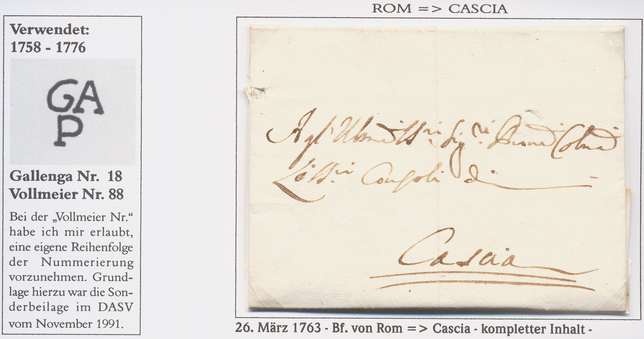 ROM => CASCIA
Verwendet:
1758 - 1776
GA
P
Gallenga Nr. 18
Vollmeier Nr. 88
Bei der „Vollmeier Nr.“
habe ich mir erlaubt,
eine eigene Reihenfolge
der Nummerierung
vorzunehmen. Grund-
lage hierzu war die Son-
derbeilage im DASV
vom November 1991.
Consoli di
Cascia
26. März 1763 - Bf. von Rom => Cascia - kompletter Inhalt -